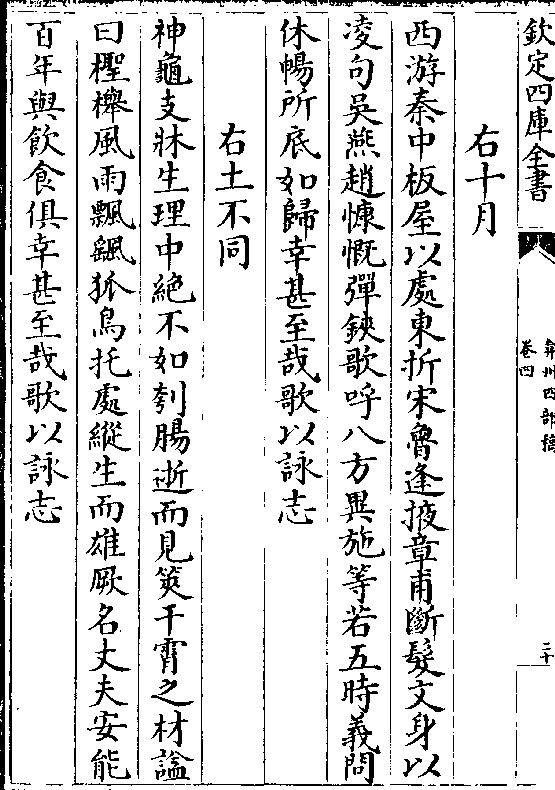 欽定四庫全書
弇州四部稿
卷四
二十
右十月
西游秦中板屋以處東折宋魯逢掖章甫斷髮文身以
凌句吳燕趙慷慨彈鋏歌呼八方異施等若五時義問
休暢所底如歸幸甚至哉歌以詠志
右土不同
神龜支牀生理中絶不如刳腸逝而見筴干霄之材謚
曰樫櫸風雨飄颻狐鳥托處縱生而雄厥名丈夫安能
百年與飲食俱幸甚至哉歌以詠志